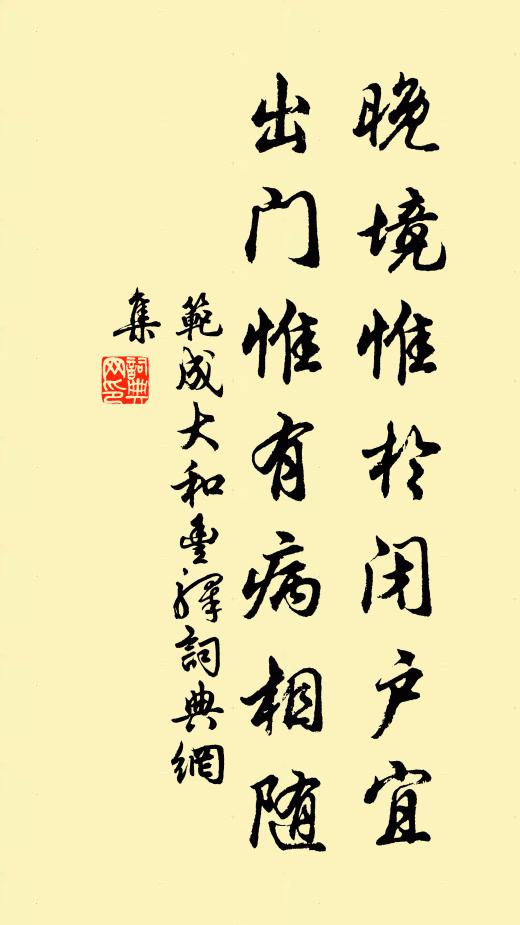 晚境惟於闭户宜
出门惟有病相随
範成大和豊釋詞典網
集
詞典网印